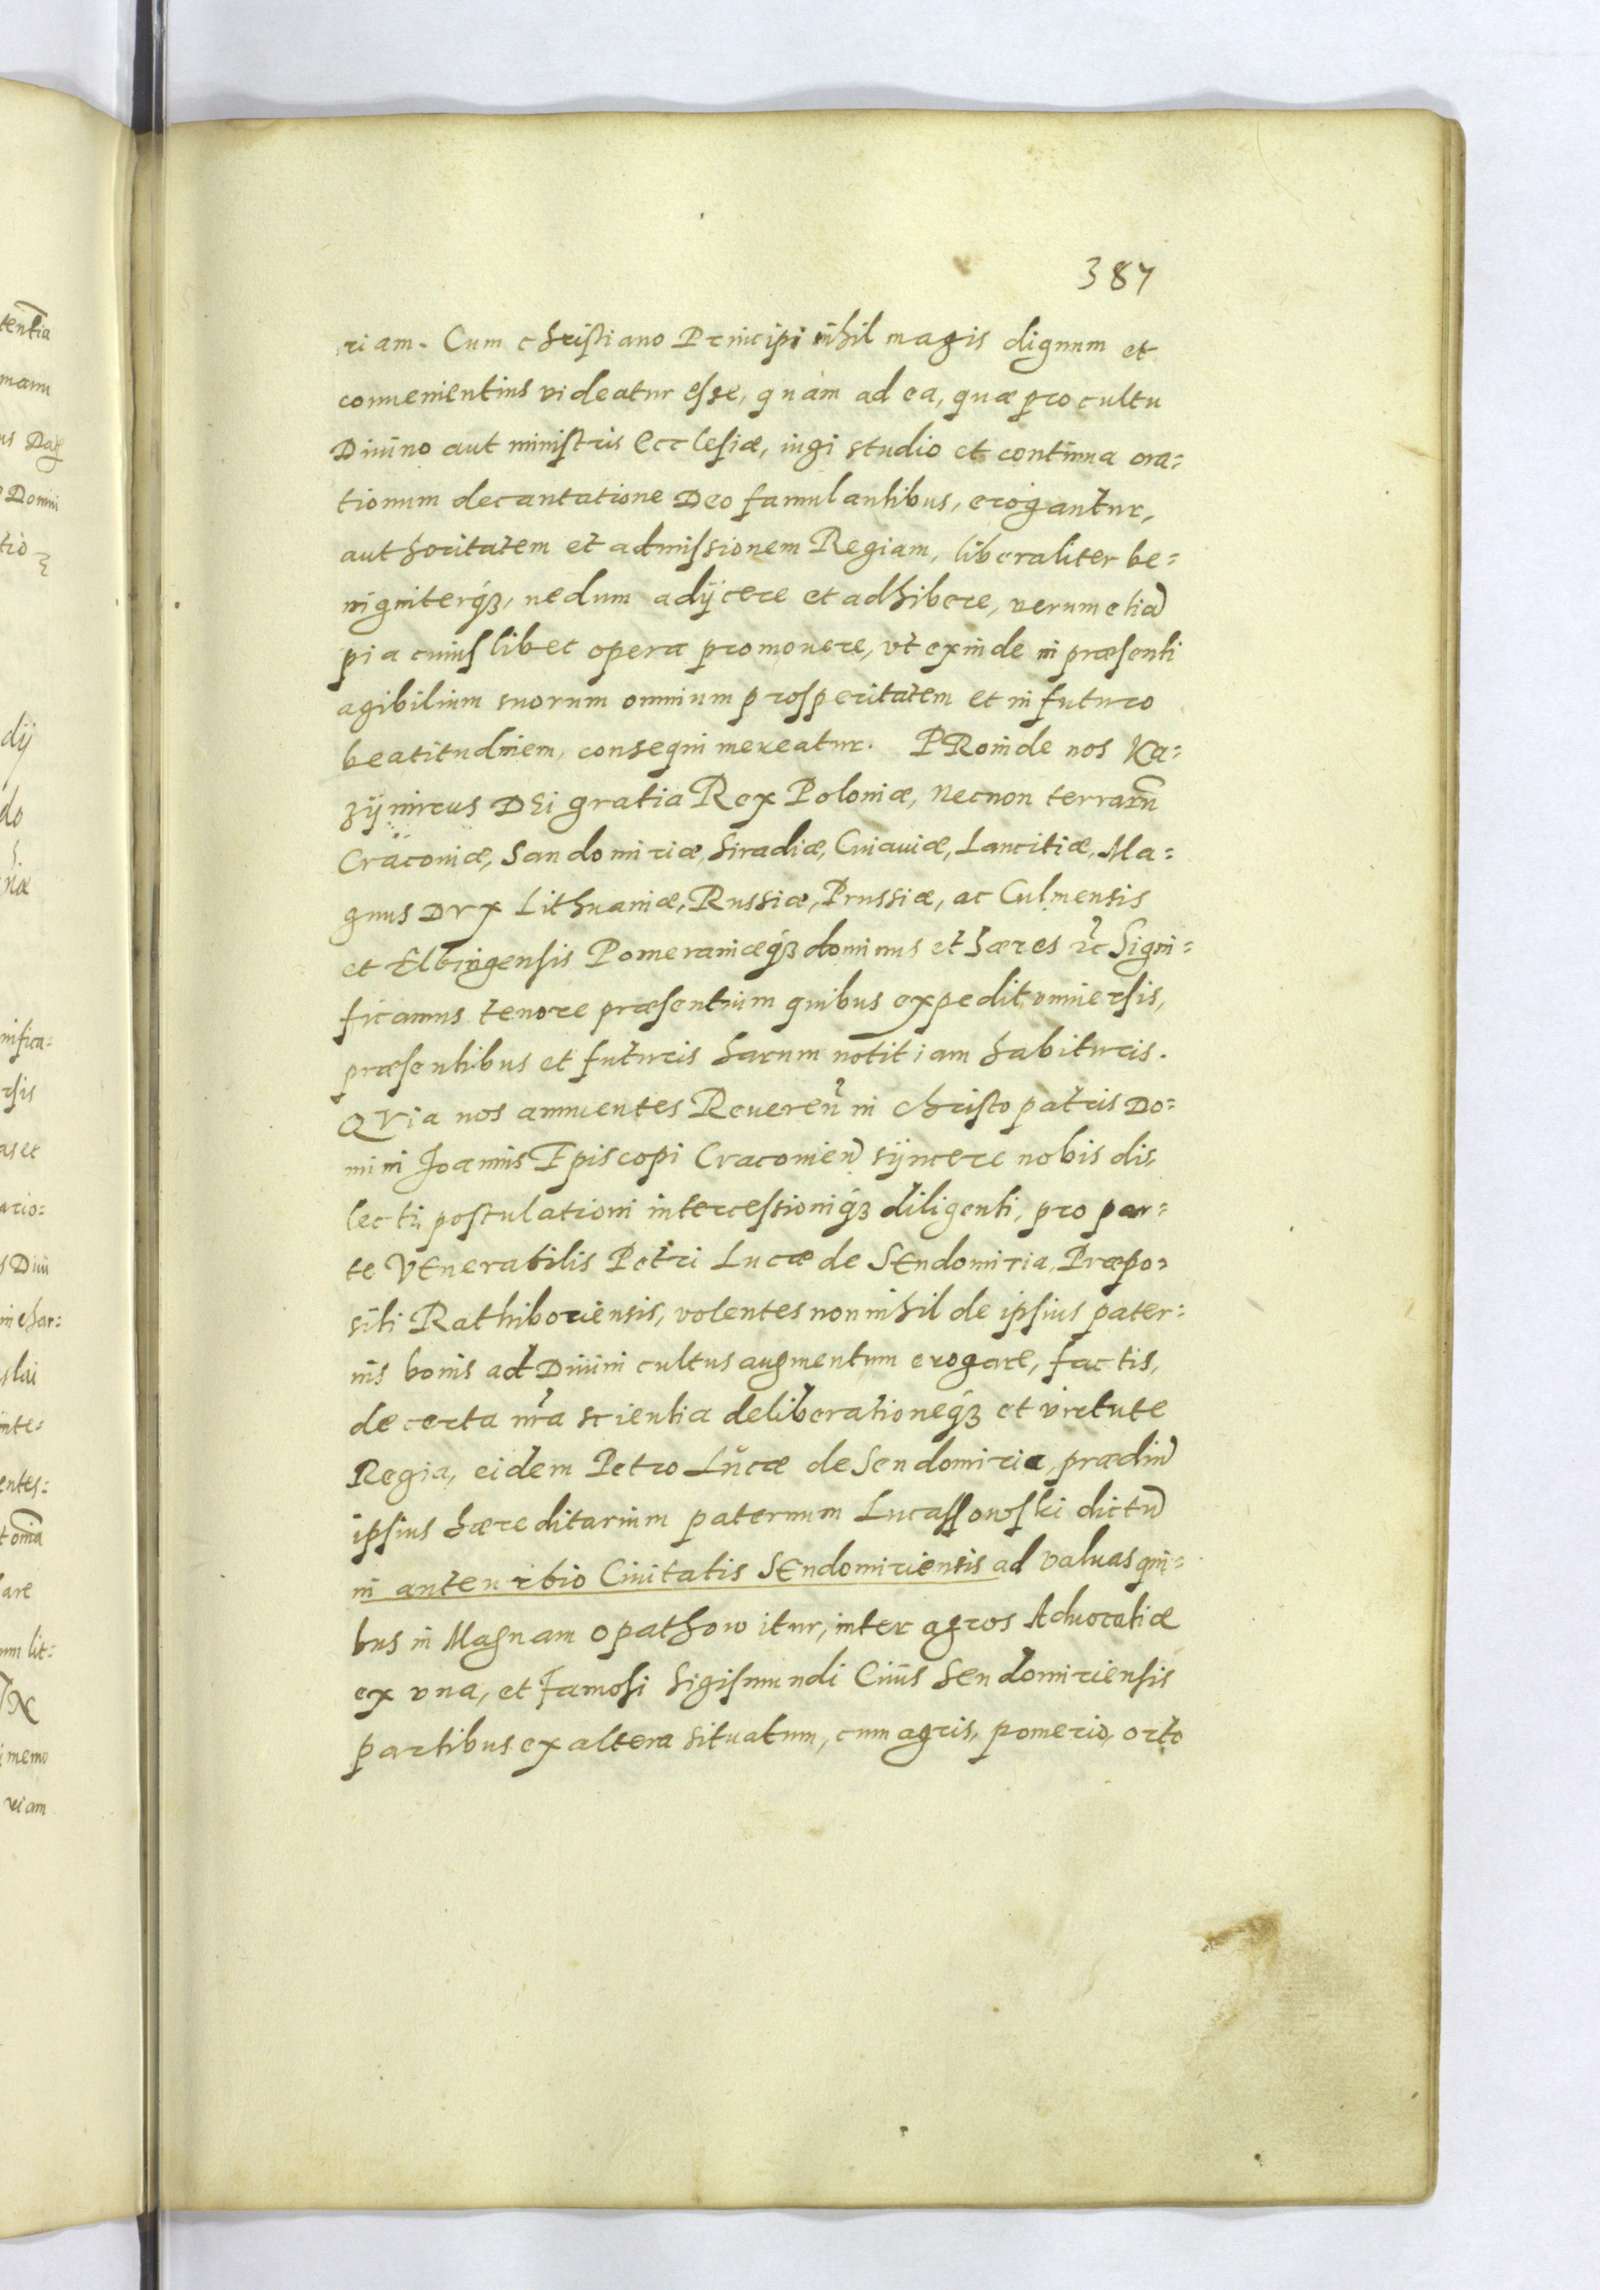 387
riam. Cum christiano Principi nihil magis dignum et
conuenientius videatur esse, quàm ad ea, quæ pro cultu
Diuino aut ministris Ecclesiæ, iugi studio et continua ora=
tionum decantatione Deo famulantibus, erogantur,
authoritatem et admissionem Regiam, liberaliter be=
nigniterq́ꝫ, nedum adÿcere et adhibere, verum etiã
pia cuiuslibet opera promouere, vt exinde in præsenti
agibilium suorum omnium prosperitatem et in futuro
beatitudinem, consequi mereatur. PRoinde nos Ka=
zÿmirus DEi gratia Rex Poloniæ, necnon terrarũ
Cracouiæ, Sandomiriæ, Siradiæ, Cuiauiæ, Lancitiæ, Ma=
gnus DVX Lithuaniæ, Russiæ, Prussiæ, ac Culmensis
et Elbingensis Pomeraniæq́ꝫ dominus et hæres ꝛc̃ Signi=
ficamus tenore præsentium quibus expedit vniuersis,
præsentibus et futuris harum notitiam habituris.
QVia nos annuentes Reueren̄ in Christo patris Do=
mini Joannis Episcopi Cracouien̄ sÿncere nobis di=
lecti, postulationi intercessioniq́ꝫ diligenti, pro par=
te VEnerabilis Petri Lucæ de SEndomiria, Præpo=
siti Rathiboriensis, volentes nonnihil de ipsius pater=
nis bonis ad Diuini cultus augmentum erogare, factis,
de certa nr̃a scientia deliberationeq́ꝫ et virtute
Regia, eidem Petro Lucæ de Sendomiria, prædiũ
ipsius hæreditarium paternum Lucassowski dictũ
in antenrbio Ciuitatis SEndomiriensis ad valuas qui=
bus in Magnam Opathow itur, inter agros Aduocatiæ
ex vna, et Famosi Sigismundi Ciuis Sendomiriensis
partibus ex altera situatum, cum agris, pomerio, orto